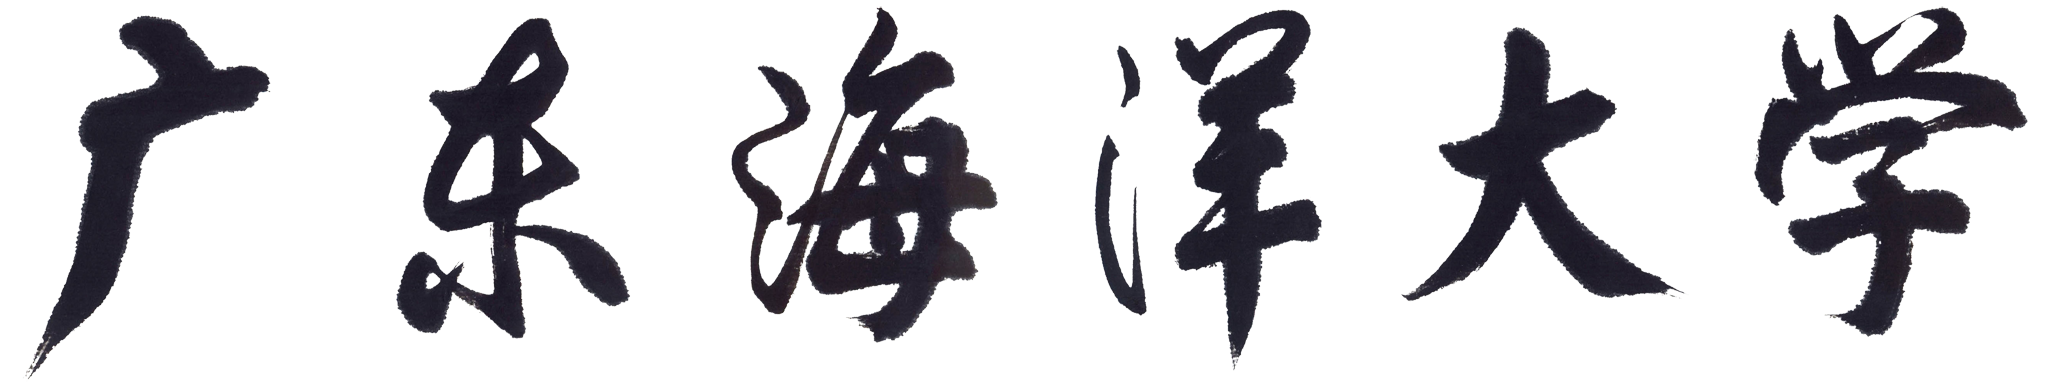 广东海洋大学